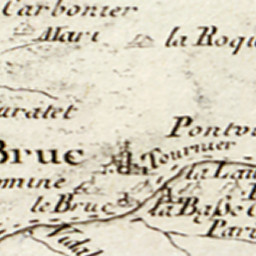 Carbonier
Mari
la Roqu
uratet
Pontv
Bruc
Tournier
la Lau
omine
le Bruc
la Basse
Pari
Vidal